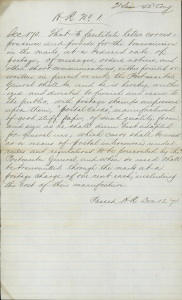 H.R. No 1
Sec. 170. That to facilitate letter corres-
pondence and provide for the transmission
in the mails, at a reduced rate of
postage, of messages, orders, notices, and
other short communications, either printed or
written in pencil or ink, the Postmaster
General shall be and he is hereby author-
ized and directed to furnish and issue to
the public, with postage stamps impressed
upon them, "postal cards," manufactured
of good stiff paper, of such quality, form
and size as he shall deem best adapted
for general use; which cards shall be used
as a means of postal intercourse, under
rules and regulations to be prescribed by the
Postmaster General, and when so used shall
be transmitted through the mails at a
postage charge of one cent each, including
the cost of their manufacture.
Passed H.R. Dec. 12, 71